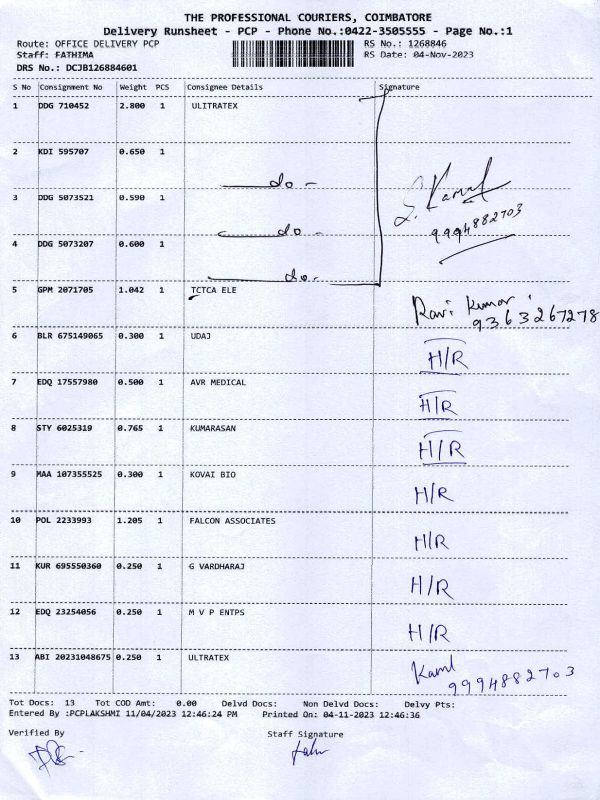 THE PROFESSIONAL COURIERS, COIMBATORE
Delivery Runsheet - PCP - Phone No.:0422-3505555 - Page No.:1
Route: OFFICE DELIVERY PCP RS No.: 1268846
Staff: FATHIMA RS Date: 04-Nov-2023
DRS No.: DCJB126884601
S No Consignment No Weight PCS Consignee Details Signature
1 DDG 710452 2.800 1 ULITRATEX
2 KDI 595707 0.650 1 do -
3 DDG 5073521 0.590 1 do - S. Kamal 9994882703
4 DDG 5073207 0.600 1 do.
5 GPM 2071705 1.042 1 TCTCA ELE Ravi Kumar 9363267278
6 BLR 675149065 0.300 1 UDAJ H/R
7 EDQ 17557980 0.500 1 AVR MEDICAL H/R
8 STY 6025319 0.765 1 KUMARASAN H/R
9 MAA 107355525 0.300 1 KOVAI BIO H/R
10 POL 2233993 1.205 1 FALCON ASSOCIATES H/R
11 KUR 695550360 0.250 1 G VARDHARAJ H/R
12 EDQ 23254056 0.250 1 M V P ENTPS H/R
13 ABI 20231048675 0.250 1 ULTRATEX Kaml 9994882703
Tot Docs: 13 Tot COD Amt: 0.00 Delvd Docs: Non Delvd Docs: Delvy Pts:
Entered By :PCPLAKSHMI 11/04/2023 12:46:24 PM Printed On: 04-11-2023 12:46:36
Verified By Staff Signature